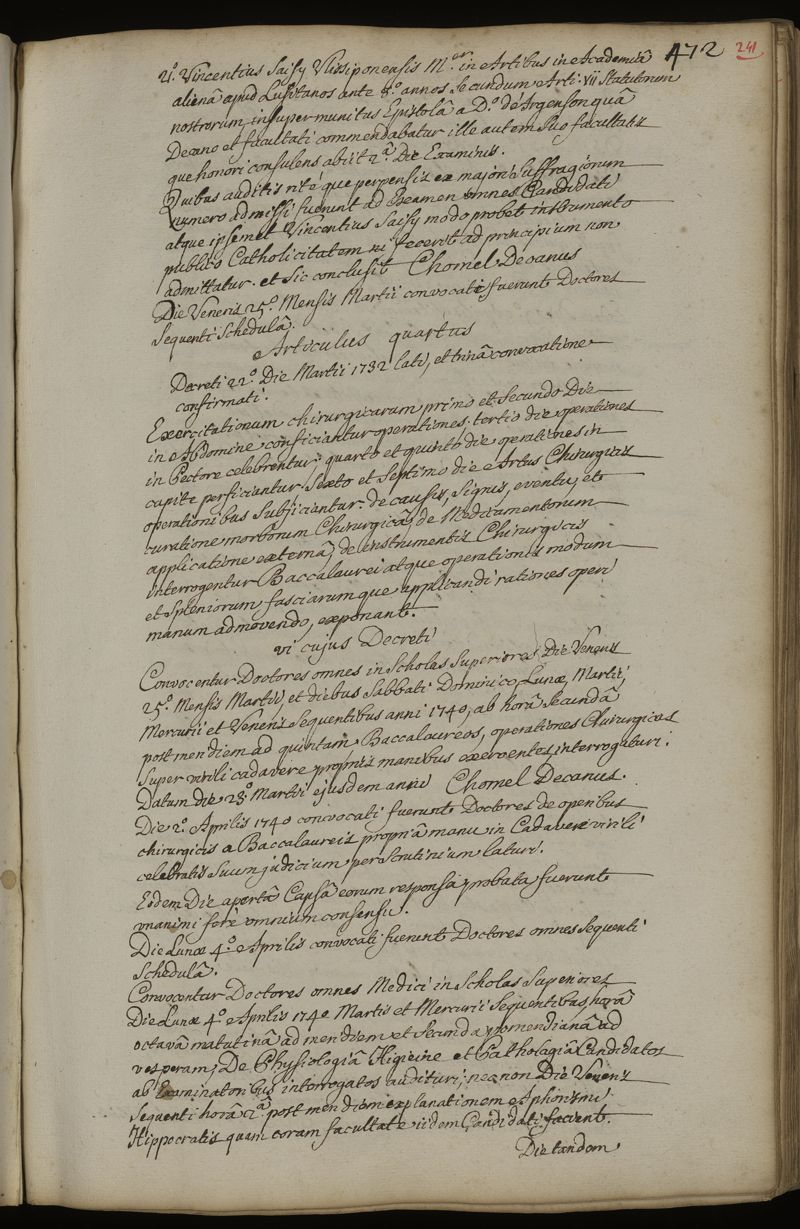 472 241
21°. Vincentius Saisy Ulissiponensis M.er in Artibus in Academiâ
alienâ apud Lusitanos ante 8.° annos secundum Arti. VII Statutorum
nostrorum insuper munitus Epistolâ a D.° de Argenson quâ
Decano et facultati commendabatur ille autem suo facultatis
que honori consulens abiit 2.â Die Examinis.
Quibus auditis ritè que perpensis ex majori suffragiorum
numero admissi fuerunt ad Examen omnes Candidati
atque ipsemet Vincentius Saisy modo probet instrumento
publico Catholicitatem ni fecerit ad principium non
admittatur. et sic conclusit Chomel Decanus
Die Veneris 25.° Mensis Martii convocati fuerunt Doctores
sequenti Schedulâ.
Articulus quartus
Decreti 22.° Die Martii 1732 lati, et trinâ convocatione
confirmati.
Exercitationum chirurgicarum primo et secundo Die
in Abdomine conficiantur operationes. tertio die operationes
in Pectore celebrentur, quarto et quinto die operationes in
capite perficiantur, Sexto et Septimo die Artus Chirurgicis
operationibus subjiciantur. de causis, signis, eventu, et
curatione morborum Chirurgicâ, de Medicamentorum
applicatione externâ, de instrumentis Chirurgicis
interrogentur Baccalaurei atque operationis modum
et spleniorum fasciarumque applicandi rationes operi
manum admovendo, exponant.
vi cujus Decreti
Convocentur Doctores omnes in Scholas Superiores Die Veneris
25.° Mensis Martii, et diebus Sabbati Dominico, Lunæ, Martii,
Mercurii et Veneris sequentibus anni 1740, ab horâ secundâ
post meridiem ad quintam, Baccalaureos, operationes Chirurgicas
super virili cadavere propriis manibus exercentes, interrogaturi.
Datum die 23.° Martii ejusdem anni Chomel Decanus.
Die 2.° Aprilis 1740 convocati fuerunt Doctores de operibus
chirurgicis a Baccalaureis propriâ manu in Cadavere virili
celebratis suum judicium per scrutinium laturi.
Eodem Die apertâ Capsâ eorum responsa probata fuerunt
unanimi ferè omnium consensu.
Die Lunæ 4.° Aprilis convocati fuerunt Doctores omnes sequenti
Schedulâ.
Convocentur Doctores omnes Medici in Scholas Superiores
Die Lunæ 4.° Aprilis 1740 Martis et Mercurii sequentibus, horâ
octavâ matutinâ ad meridiem et secunda pomeridianâ ad
vesperam, De Physiologiâ Higieine et Pathologiâ Candidatos
ab Examinatoribus interrogatos audituri; nec non Die Veneris
sequenti horâ 2.â post meridiem explanationem Aphorismi
Hippocratis quam coram facultate iidem Candidati facient.
Die tandem